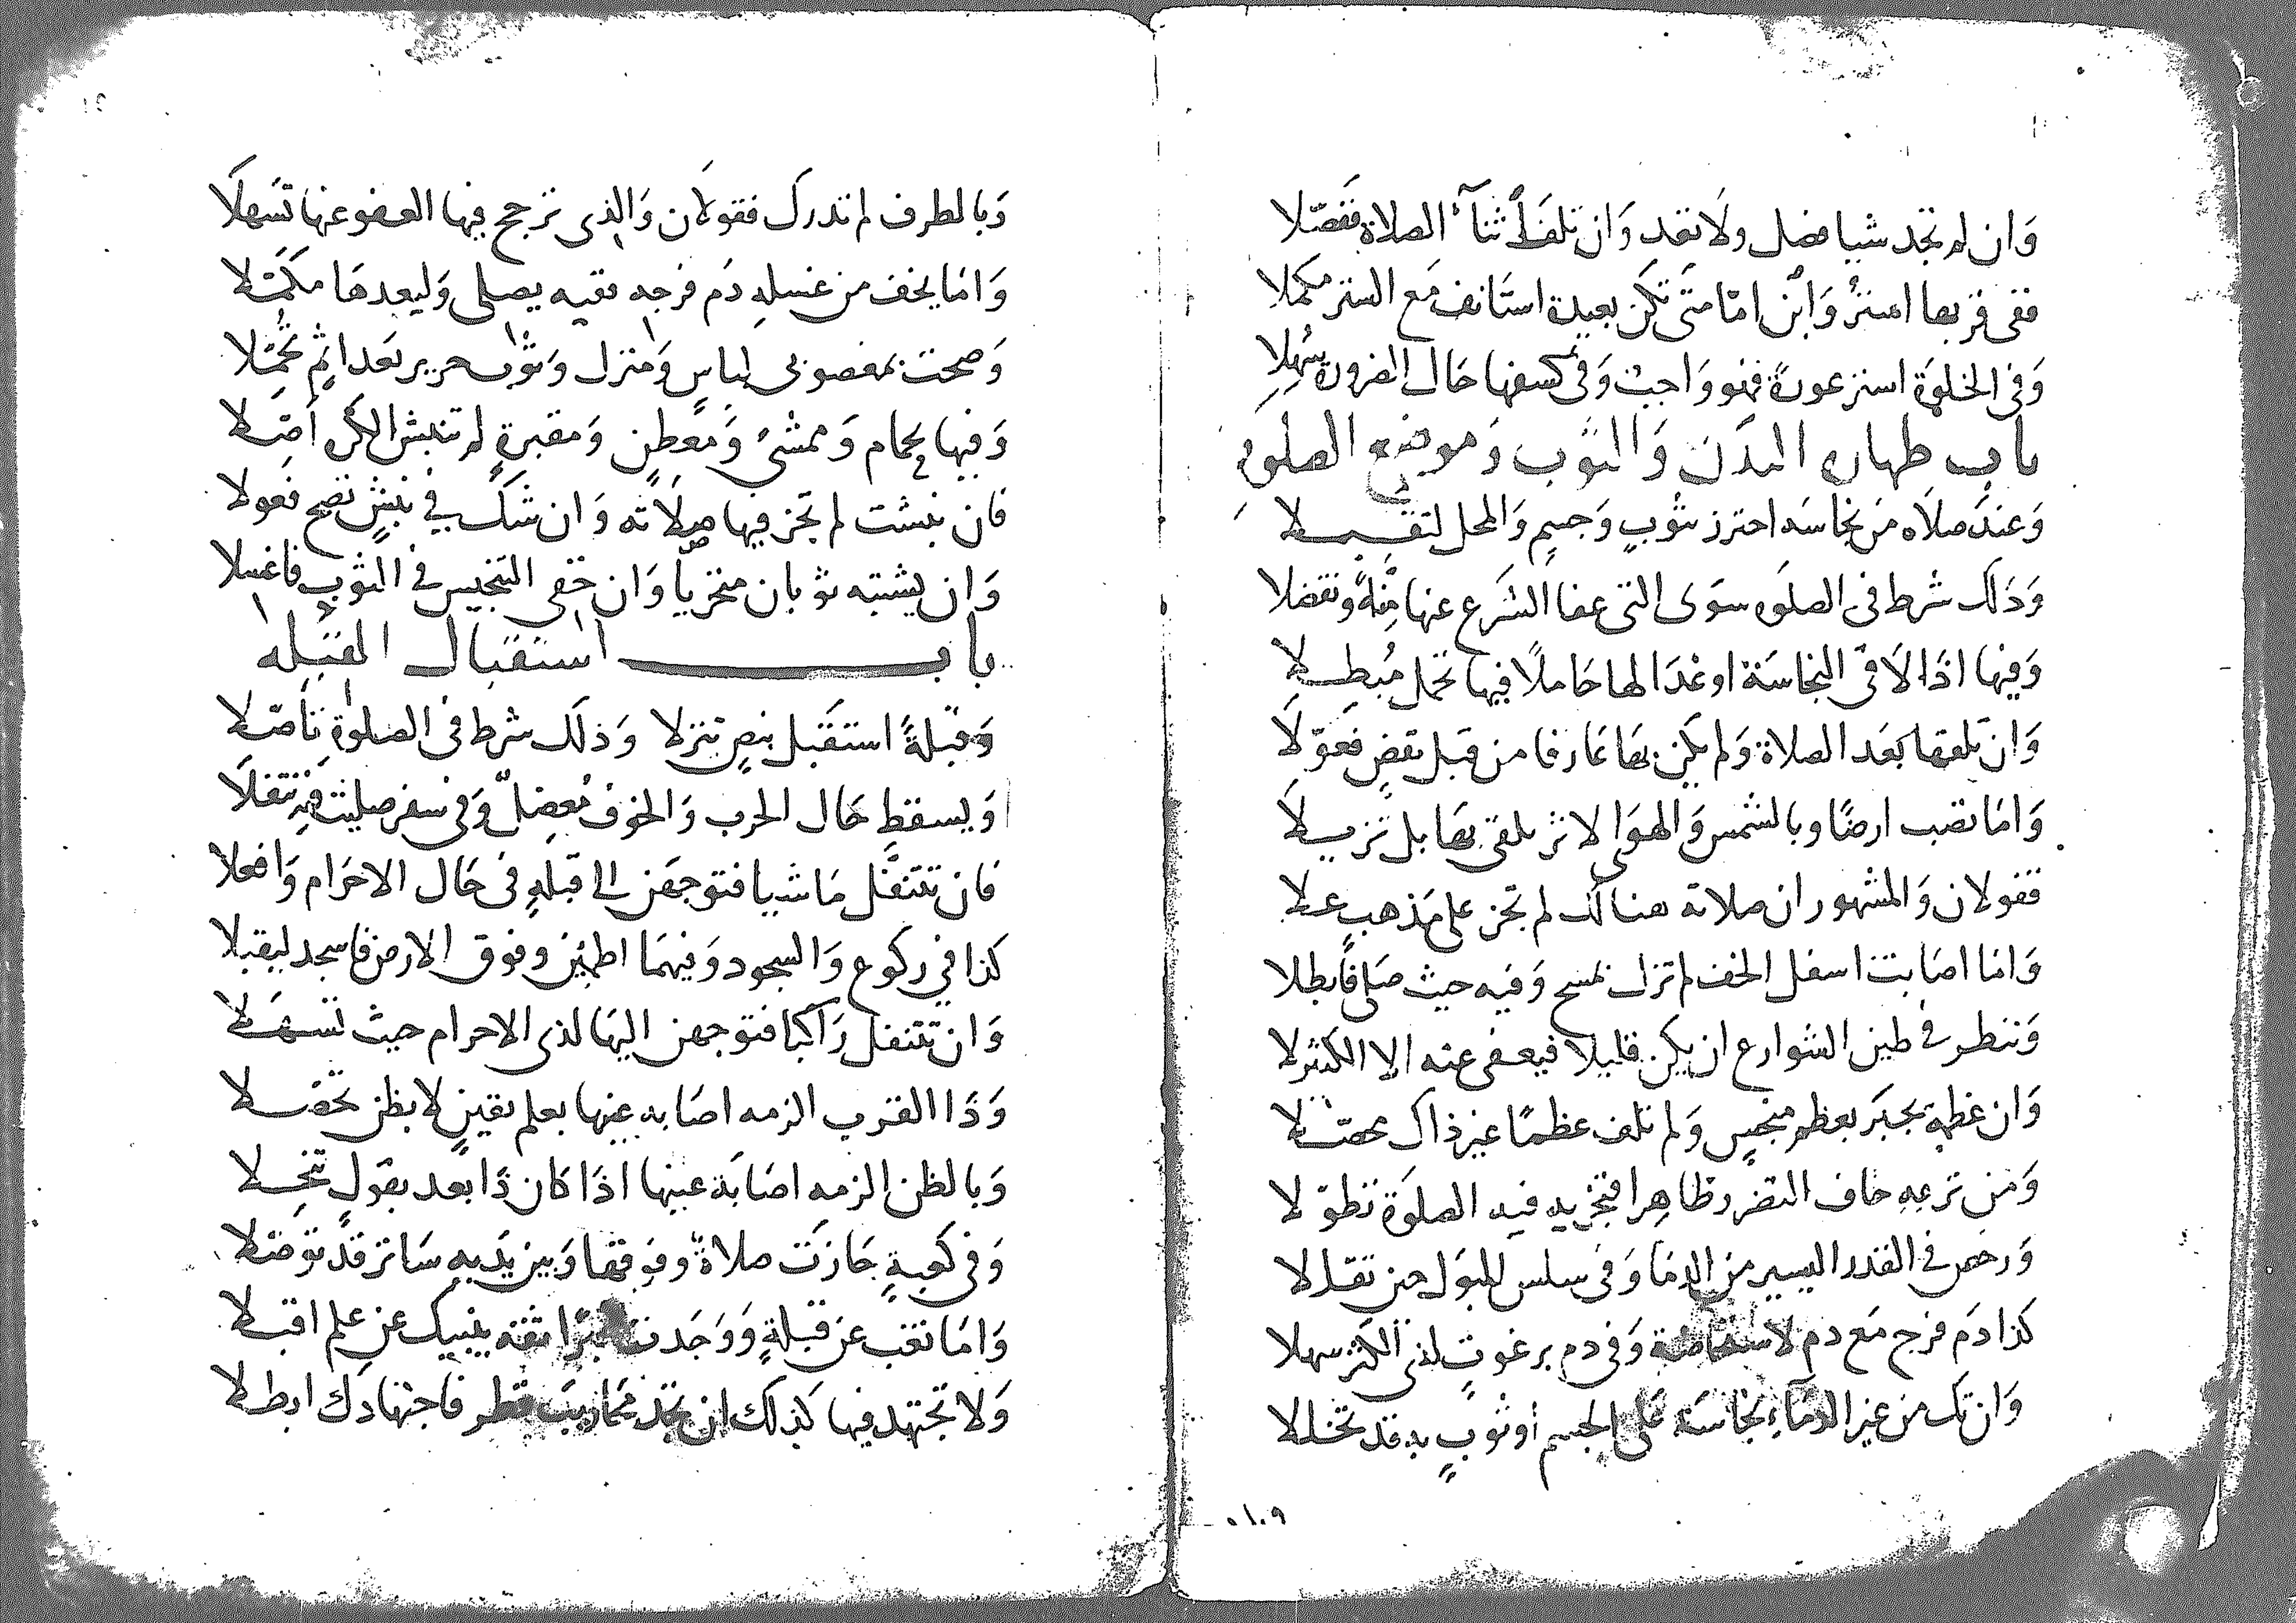 وَان لم تجد شيا فصل ولَا تعد وَان تلفَ أثنآء الصلاة ففَصّلا
ففى قربها استرْ وَابْن امّا متَى تكن بعيدة استَانف مَع الستر مكملا
وَفى الخلوَة استر عورةً فهو وَاجب وَفى كشفها حَال الضرورة سُهِلا
باب طهارة البدَن وَالثوب وَموضع الصلوة
وَعندَ صلاه من نجاسَه احترز بثوبٍ وَجسمٍ وَالمحل لتقبــلا
وَذلك شرط فى الصلوه سوَى التى عفا الشرع عنها منةً وتفضلا
وَفيها اذَا لَاقى النجاسَة او غدَا لها حَاملًا فيها تحمل مُبطــلا
وَان تلقها بَعد الصلاة وَلم يكن بهَا عَارفا من قبل يقضِ فعوّلَا
وَامَا تصب ارضًا وبالشمس وَالهوَى لا ثر يلقى بهَا بل تزيــلا
فقولان وَالمشهور ان صلاته هنالك لم تجز على مَذهب عــلا
وَامَا اصَابت اسفل الخف لم تزل بمسح وَفيه حيث صَلى فابطلا
وَننظر فى طين الشوارع ان يكن قليلا فيعفى عنه الا الكثير لا
وَان عظمه يجبَر بعظم منجسٍ وَلم تلف عظمًا غير ذاك محصــلا
وَمن نزعهِ خاف التضرر ظاهِرا فتجزيه فيه الصلوَة تطوّلا
وَرخص فى القدر اليسير من الدمَا وَفى سلس للبوَل حين تقــلا
كذا دَم فرج مَع دم لاستحاضة وَفى دم برغوثٍ لذى الكثر سهلا
وَان تك من غير الدمَاء نجاسَة عَلى الجسم أو ثوبٍ به قد تخللا
٥١٠٩
وَبالطرف لم تدرك فقولَان وَالذى ترجح فيها العفو عنها تسَهلَا
وَامَا يخف من غسلهِ دَم فرجه ففيه يصلى وَليعدهَا مكمّــلا
وَصحت بمغصوبى لباسٍ وَمنزل وَثوْب حرير بَعد اثمٍ تحمّــلا
وَفيها بحمام وَممشىً وَمعطنٍ وَمقبرةٍ لم تنبش الكره أصّــلا
فان نبشت لم تجز فيها صلَاته وَان شكَ في نبشٍ تصح فعولا
وَان يشتبه ثوبان متحريا وَان خفى التنجيس فى الثوب فاغسلا
باب استقبال القبله
وَقبلةً استقبل بنصٍ تنزلا وَذلك شرط فى الصلوٰة تأصّــلا
وَيسقط حَال الحرب وَالخوف مُعضلٌ وَفى سفر صليت فيه تنفلَا
فان تتنفّل مَاشيا فتوجهَن الى قبلهٍ فى حَال الاحرَام وَافعلا
كذا في ركوع وَالسجود وَفيهمَا اطمئن وفوق الارض فاسجد ليقبلا
وَان تتنفل رَاكبا فتوجهن اليهَا لذى الاحرام حيث تسهــلا
وَذا القرب الزمه اصَابه عينها بعلم يقينٍ لا بظن تحصــلا
وَبالظن الزمه اصَابَة عينها اذَا كان ذَا بُعد بقولٍ تنخــلا
وَفى كعبةٍ جَازَت صلاةٌ وفوقها وَبين يَديهِ سَاتر قد توصّلا
وَامَا تغب عن قبلةٍ وَوَجَدت مخبرًا بثقه ينبيك عن علم اقبــلا
وَلا تجتهد فيها كذلك ان تجد محاريبَ قطر فاجتهادك ابطــلا